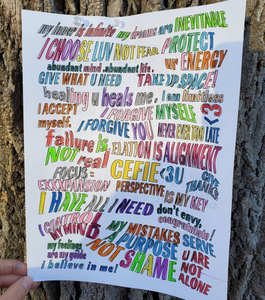 my inner is infinite my dreams are INEVITABLE
I CHOOSE LUV NOT FEAR PROTECT
ur ENERGY
abundant mind. abundant life.
GIVE WHAT U NEED TAKE UP SPACE!
healing u heals me. I am limitless
I ACCEPT
myself.
I FORGIVE MYSELF <3
I FORGIVE YOU NEVER EVER TOO LATE
failure is
NOT real
ELATION IS ALIGNMENT
FOCUS =
EXXXPANSION
CEFIE <3U
GIVE
THANKS
PERSPECTIVE IS MY KEY
I HAVE ALL I NEED
don't envy,
congratulate!
I CONTROL
MY MIND
MY MISTAKES SERVE
MY PURPOSE
my feelings
are my guide
NOT SHAME
U ARE
NOT
ALONE
i believe in me!